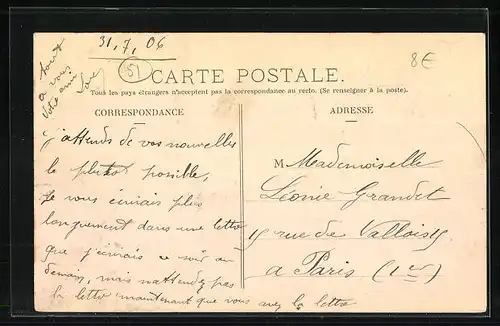 31, 7, 06
8€
51
tout
a vous
votre ami
CARTE POSTALE.
Tous les pays étrangers n'acceptent pas la correspondance au recto. (Se renseigner à la poste).
CORRESPONDANCE
J'attends de vos nouvelles
le plutot possible,
Je vous écrirais plus
longuement dans une lettre
que j'écrirais ce soir ou
demain, mais n'attendez pas
la lettre maintenant que vous avez la lettre
ADRESSE
M Mademoiselle
Léonie Grandet
rue de Vallois
a Paris (1er)